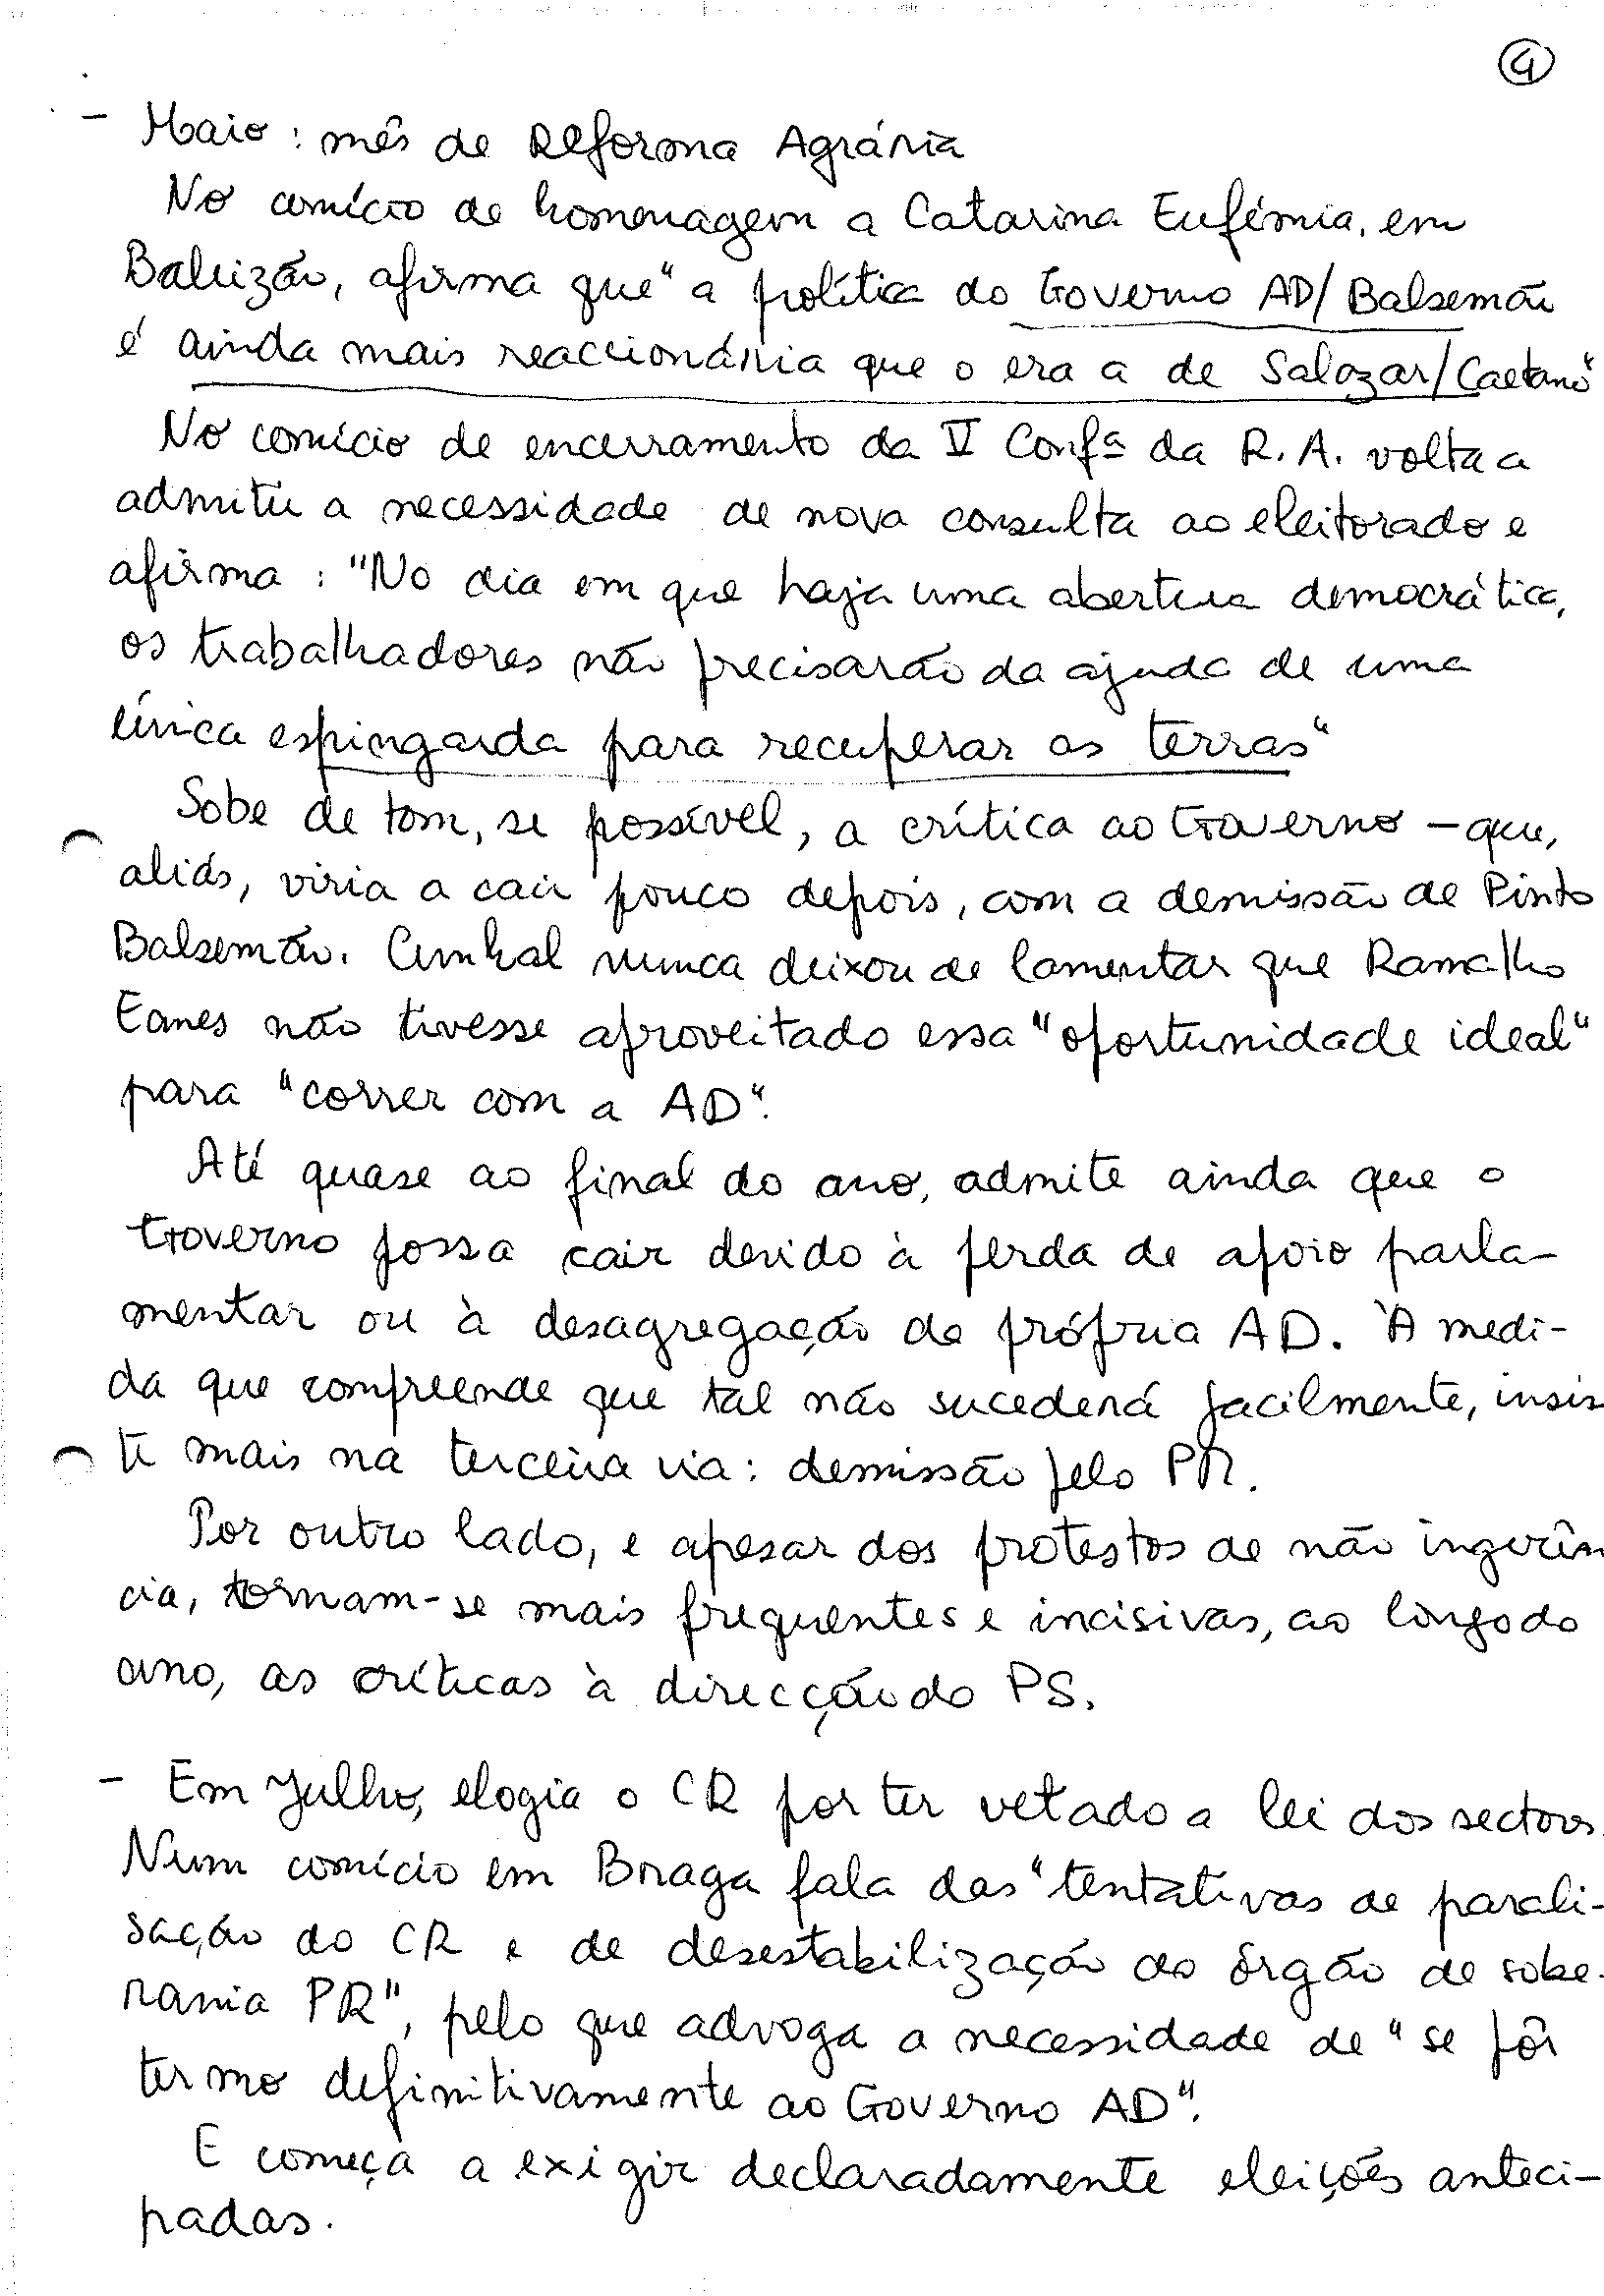 4
- Maio : mês de Reforma Agrária
No comício de homenagem a Catarina Eufémia, em
Baleizão, afirma que "a política do Governo AD/Balsemão
é ainda mais reaccionária que o era a de Salazar/Caetano"
No comício de encerramento da V Confª da R. A. volta a
admitir a necessidade de nova consulta ao eleitorado e
afirma : "No dia em que haja uma abertura democrática,
os trabalhadores não precisarão da ajuda de uma
única espingarda para recuperar as terras"
Sobe de tom, se possível, a crítica ao Governo - que,
aliás, viria a cair pouco depois, com a demissão de Pinto
Balsemão. Cunhal nunca deixou de lamentar que Ramalho
Eanes não tivesse aproveitado essa "oportunidade ideal"
para "correr com a AD".
Até quase ao final do ano, admite ainda que o
Governo possa cair devido à perda de apoio parla-
mentar ou à desagregação da própria AD. À medi-
da que compreende que tal não sucederá facilmente, insis
te mais na terceira via : demissão pelo PR.
Por outro lado, e apesar dos protestos de não ingerên
cia, tornam-se mais frequentes e incisivas, ao longo do
ano, as críticas à direcção do PS.
- Em Julho, elogia o CR por ter vetado a lei dos sectores.
Num comício em Braga fala das "tentativas de parali-
sação do CR e de desestabilização do órgão de sobe-
rania PR", pelo que advoga a necessidade de "se pôr
termo definitivamente ao Governo AD".
E começa a exigir declaradamente eleições anteci-
padas.